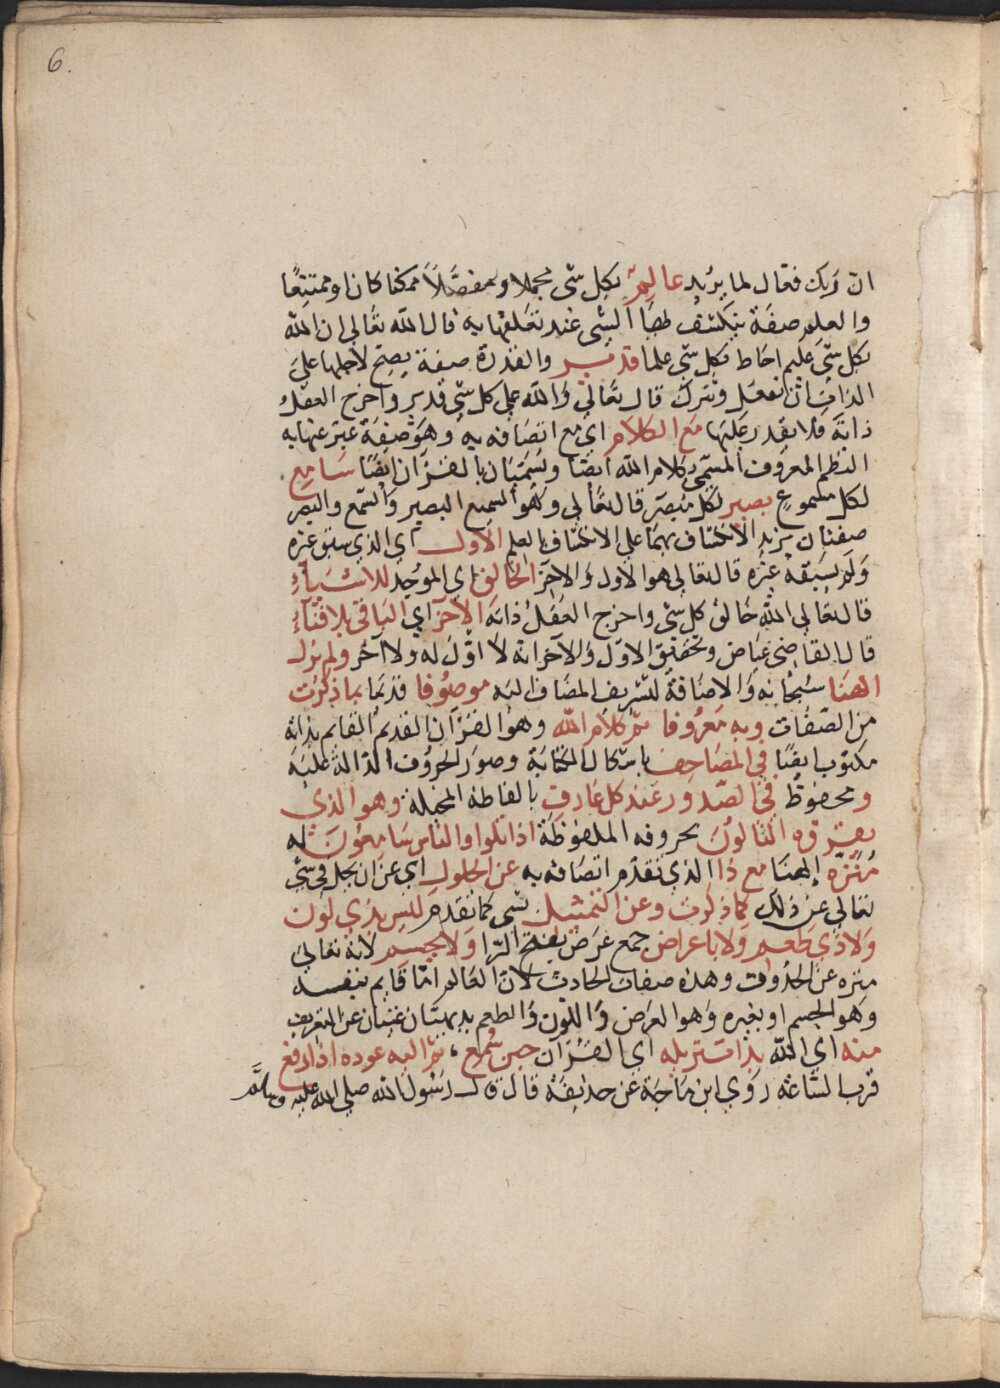 6.
ان ربك فعال لما يريد عالم بكل شئ مجملا ومفصلا ممكنا كان او ممتنعا
والعلم صفة ينكشف بها الشئ عند تعلقها به قال الله تعالى ان الله
بكل شئ عليم احاط بكل شئ علما قدير والقدرة صفة يصح لاجلها على
الذات ان تفعل وتترك قال تعالى والله على كل شئ قدير واخرج العقل
ذاته فلا يقدر عليها مع الكلام اي مع اتصافه به وهو صفة عبر عنها به
النظم المعروف المسمى بكلام الله ايضا ويسميان بالقرآن ايضا سامع
لكل مسموع بصير لكل مبصر قال تعالى وهو السميع البصير والسمع والبصر
صفتان يزيد الانكشاف بهما على الانكشاف بالعلم الاول اي الذي سبق غيره
ولم يسبقه غيره قال تعالى هو الاول والاخر الخالق اي الموجد للاشياء
قال تعالى الله خالق كل شئ واخرج العقل ذاته الآخر اي الباقي بلا فناء
قال القاضي عياض وتحقيق الاول والآخر انه لا اول له ولا آخر ولم يزل
الهنا سبحانه والاضافة لتشريف المضاف اليه موصوفا قدما بما ذكرت
من الصفات وبه معروفا ثم كلام الله وهو القرآن القديم القايم بذاته
مكتوب ايضا في المصاحف باشكال الكتابة وصور الحروف الدالة عليه
ومحفوظ في الصدور عند كل عارف بالفاظه المخيلة وهو الذي
يقرؤه التالون بحروفه الملفوظة اذا تلوا والناس سامعون له
منزه إلهنا مع ذا الذي تقدم اتصافه به عن الحلول اي عن ان يحل في شئ
تعالى عن ذلك كما ذكرت وعن التمثيل بشئ كما تقدم ليس بذي لون
ولا ذي طعم ولا باعراض جمع عرض بفتح الرا ولا بجسم لانه تعالى
منزه عن الحدوث وهذه صفات الحادث لان العالم اما قايم بنفسه
وهو الجسم او بغيره وهو العرض واللون والطعم بديهيتان غنيتان عن التعريف
منه اي الله بدا تنزيله اي القرآن حين سمع، ثم اليه عوده اذا رفع
قرب الساعة روى ابن ماجة عن حذيفة قال قال رسول الله صلى الله عليه وسلم